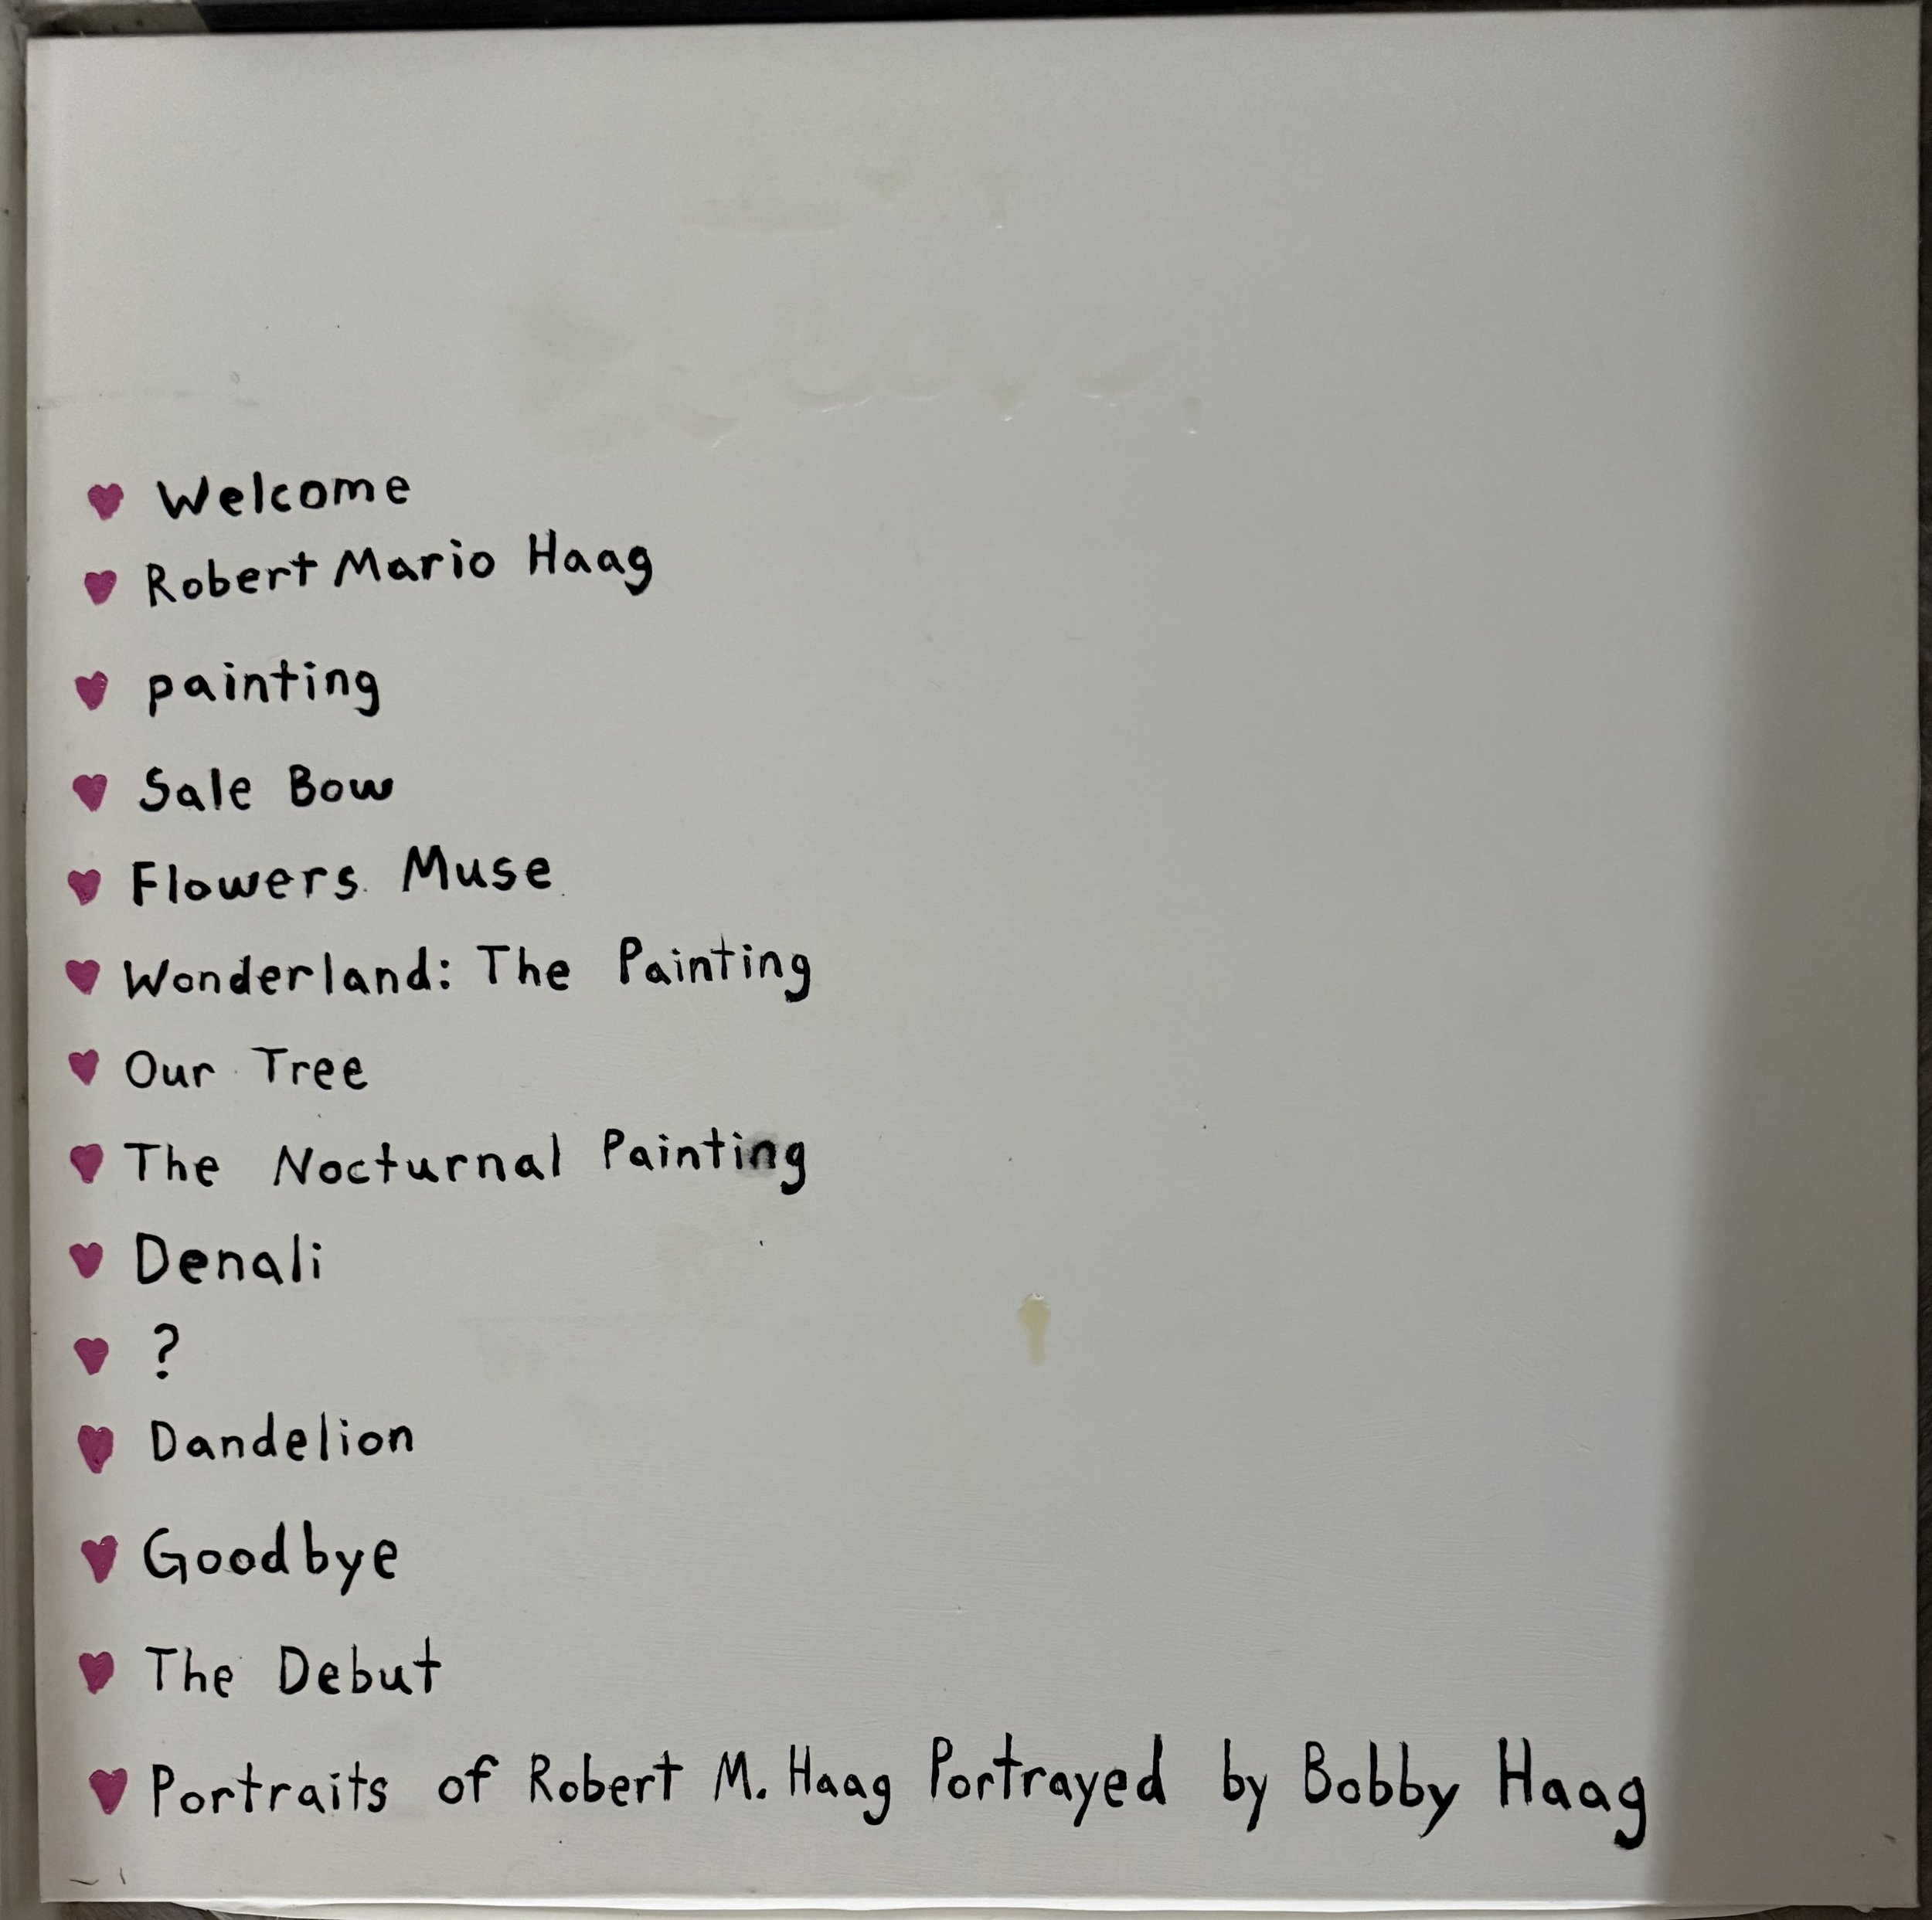 Welcome
Robert Mario Haag
painting
Sale Bow
Flowers Muse
Wonderland: The Painting
Our Tree
The Nocturnal Painting
Denali
?
Dandelion
Goodbye
The Debut
Portraits of Robert M. Haag Portrayed by Bobby Haag